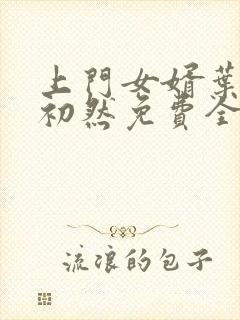 上門女婿葉
初然免費全
流浪的包子